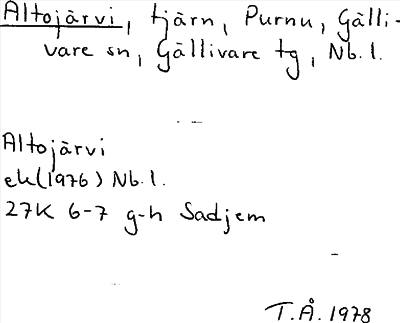 Altojärvi, tjärn, Purnu, Gälli-
vare sn, Gällivare tg, Nb. l.
Altojärvi
ek(1976) Nb. l.
27K 6-7 g-h Sadjem
T.Å. 1978